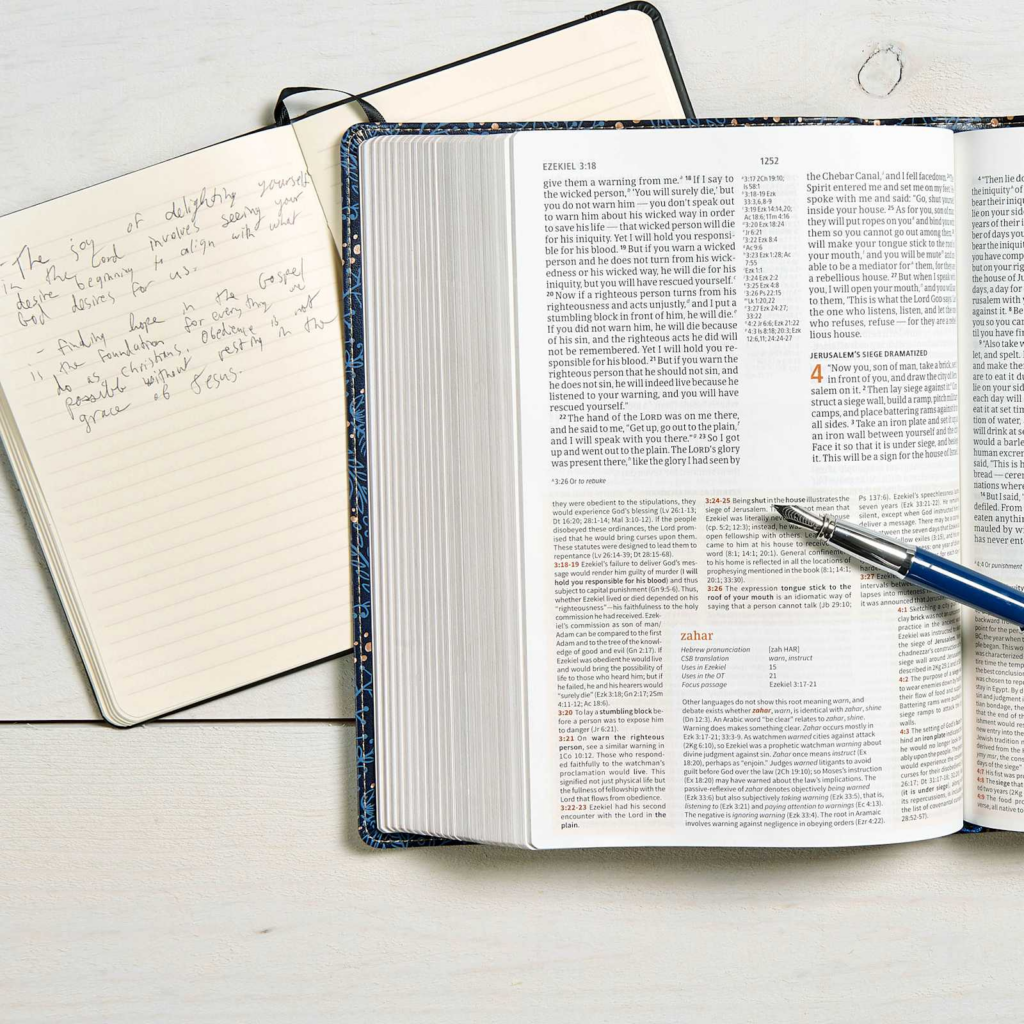 - The joy of delighting yourself
in the Lord involves seeing your
desire beginning to align with what
God desires for us.
- Finding hope in the Gospel
is the foundation for everything we
do as Christians. Obedience is not
possible without resting in the
grace of Jesus.
EZEKIEL 3:18
1252
give them a warning from me. 18 If I say to
the wicked person, ‘You will surely die,’ but
you do not warn him — you don’t speak out
to warn him about his wicked way in order
to save his life — that wicked person will die
for his iniquity. Yet I will hold you responsi-
ble for his blood. 19 But if you warn a wicked
person and he does not turn from his wick-
edness or his wicked way, he will die for his
iniquity, but you will have rescued yourself.
20 Now if a righteous person turns from his
righteousness and acts unjustly, and I put a
stumbling block in front of him, he will die.
If you did not warn him, he will die because
of his sin, and the righteous acts he did will
not be remembered. Yet I will hold you re-
sponsible for his blood. 21 But if you warn the
righteous person that he should not sin, and
he does not sin, he will indeed live because he
listened to your warning, and you will have
rescued yourself.”
22 The hand of the LORD was on me there,
and he said to me, “Get up, go out to the plain,
and I will speak with you there.” 23 So I got
up and went out to the plain. The LORD’s glory
was present there, like the glory I had seen by
3:26 Or to rebuke
3:17 2Ch 19:10;
Is 58:1
3:18-19 Ezk
33:3,6,8-9
3:19 Ezk 14:14,20;
Ac 18:6; 11m 4:16
3:20 Ezk 18:24
Jr 6:21
3:22 Ezk 8:4
Ac 9:6
3:23 Ezk 1:28; Ac
7:55
Ezk 1:1
3:24 Ezk 2:2
3:25 Ezk 4:8
3:26 Ps 22:15
Lk 1:20,22
3:27 Ezk 24:27;
33:22
4:2 Jr 6:6; Ezk 21:22
4:3 Is 8:18; 20:3; Ezk
12:6,11; 24:24-27
the Chebar Canal, and I fell facedown.
Spirit entered me and set me on my feet
spoke with me and said: “Go, shut yourself
inside your house. 25 As for you, son of man,
they will put ropes on you and bind you
them so you cannot go out among them.
will make your tongue stick to the roof
your mouth, and you will be mute and
able to be a mediator for them, for they
a rebellious house. 27 But when I speak
you, I will open your mouth, and you will
to them, ‘This is what the Lord GOD says.’
the one who listens, listen, and let the
who refuses, refuse — for they are a reb
lious house.
JERUSALEM’S SIEGE DRAMATIZED
4 “Now you, son of man, take a brick, set
in front of you, and draw the city of Jeru
salem on it. 2 Then lay siege against it:
struct a siege wall, build a ramp, pitch military
camps, and place battering rams against
all sides. 3 Take an iron plate and set it up
an iron wall between yourself and the
Face it so that it is under siege, and besiege
it. This will be a sign for the house of Israel.
they were obedient to the stipulations, they
would experience God’s blessing (Lv 26:1-13;
Dt 16:20; 28:1-14; Mal 3:10-12). If the people
disobeyed these ordinances, the Lord prom-
ised that he would bring curses upon them.
These statutes were designed to lead them to
repentance (Lv 26:14-39; Dt 28:15-68).
3:18-19 Ezekiel’s failure to deliver God’s mes-
sage would render him guilty of murder (I will
hold you responsible for his blood) and thus
subject to capital punishment (Gn 9:5-6). Thus,
whether Ezekiel lived or died depended on his
“righteousness”—his faithfulness to the holy
commission he had received. Ezek-
iel’s commission as son of man/
Adam can be compared to the first
Adam and to the tree of the knowl-
edge of good and evil (Gn 2:17). If
Ezekiel was obedient he would live
and would bring the possibility of
life to those who heard him; but if
he failed, he and his hearers would
“surely die” (Ezk 3:18; Gn 2:17; 2Sm
4:11-12; Ac 18:6).
3:20 To lay a stumbling block be-
fore a person was to expose him
to danger (Jr 6:21).
3:21 On warn the righteous
person, see a similar warning in
1Co 10:12. Those who respond-
ed faithfully to the watchman’s
proclamation would live. This
signified not just physical life but
the fullness of fellowship with the
Lord that flows from obedience.
3:22-23 Ezekiel had his second
encounter with the Lord in the
plain.
3:24-25 Being shut in the house illustrates the
siege of Jerusalem. not mean that
Ezekiel was literally never house
(cp. 5:2; 12:3); instead, he was
open fellowship with others.
came to him at his house to receive
word (8:1; 14:1; 20:1). General confinement
to his home is reflected in all the locations of
prophesying mentioned in the book (8:1; 14:1;
20:1; 33:30).
3:26 The expression tongue stick to the
roof of your mouth is an idiomatic way of
saying that a person cannot talk (Jb 29:10;
zahar
Hebrew pronunciation [zah HAR]
CSB translation warn, instruct
Uses in Ezekiel 15
Uses in the OT 21
Focus passage Ezekiel 3:17-21
Other languages do not show this root meaning warn, and
debate exists whether zahar, warn, is identical with zahar, shine
(Dn 12:3). An Arabic word “be clear” relates to zahar, shine.
Warning does makes something clear. Zahar occurs mostly in
Ezk 3:17-21; 33:3-9. As watchmen warned cities against attack
(2Kg 6:10), so Ezekiel was a prophetic watchman warning about
divine judgment against sin. Zahar once means instruct (Ex
18:20), perhaps as “enjoin.” Judges warned litigants to avoid
guilt before God over the law (2Ch 19:10); so Moses’s instruction
(Ex 18:20) may have warned about the law’s implications. The
passive-reflexive of zahar denotes objectively being warned
(Ezk 33:6) but also subjectively taking warning (Ezk 33:5), that is,
listening to (Ezk 3:21) and paying attention to warnings (Ec 4:13).
The negative is ignoring warning (Ezk 33:4). The root in Aramaic
involves warning against negligence in obeying orders (Ezr 4:22).
Ps 137:6). Ezekiel’s speechlessness
seven years (Ezk 33:21-22). He
silent, except when God instructed
deliver a message. There may
3:27
intervals between
lapses into muteness
it was announced that Jerusalem
4:1 Sketching a city
clay brick was not
practice in the ancient
Ezekiel was instructed
the siege of Jerusalem
4:2 The purpose of a siege
to wear enemies down
their flow of food and
Battering rams were
siege ramps to attack
walls.
4:3 The setting of God’s
hind an iron plate
he would no longer
ably upon the people.
would experience the
curses for their
26:17; Dt 31:17-18;
(it is under siege).
its repercussions,
the list of covenantal
28:52-57).
4 “Then lie down
the iniquity of
bear their iniquity
lie on your side
years of their
ber of days you
bear the iniquity
you have completed
but on your right
the house of Ju
days, a day for
rusalem with
against it. 8 Be
you so you cannot
til you have fin
9 “Also take w
let, and spelt.
and make them
are to eat it du
lie on your side
each day will
eat it at set time
will drink at se
would a barle
human excrem
said, “This is h
bread — ceren
nations where
14 But I said,
defiled. From
eaten anything
mauled by w
has never ente
4:4 Or punishment